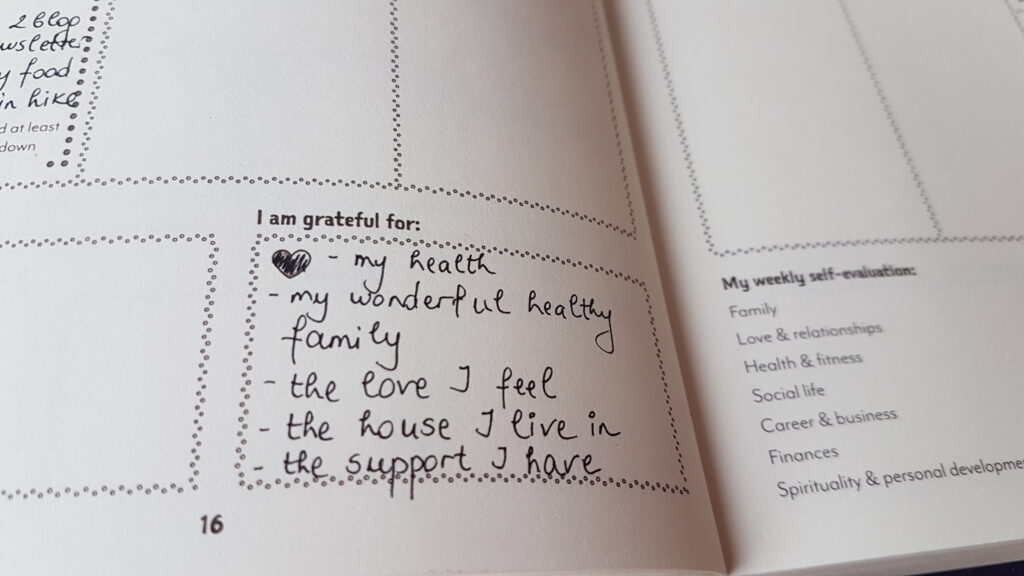 2 blog
food
in hike
d at least
down
I am grateful for:
- my health
- my wonderful healthy
family
- the love I feel
- the house I live in
- the support I have
16
My weekly self-evaluation:
Family
Love & relationships
Health & fitness
Social life
Career & business
Finances
Spirituality & personal developme